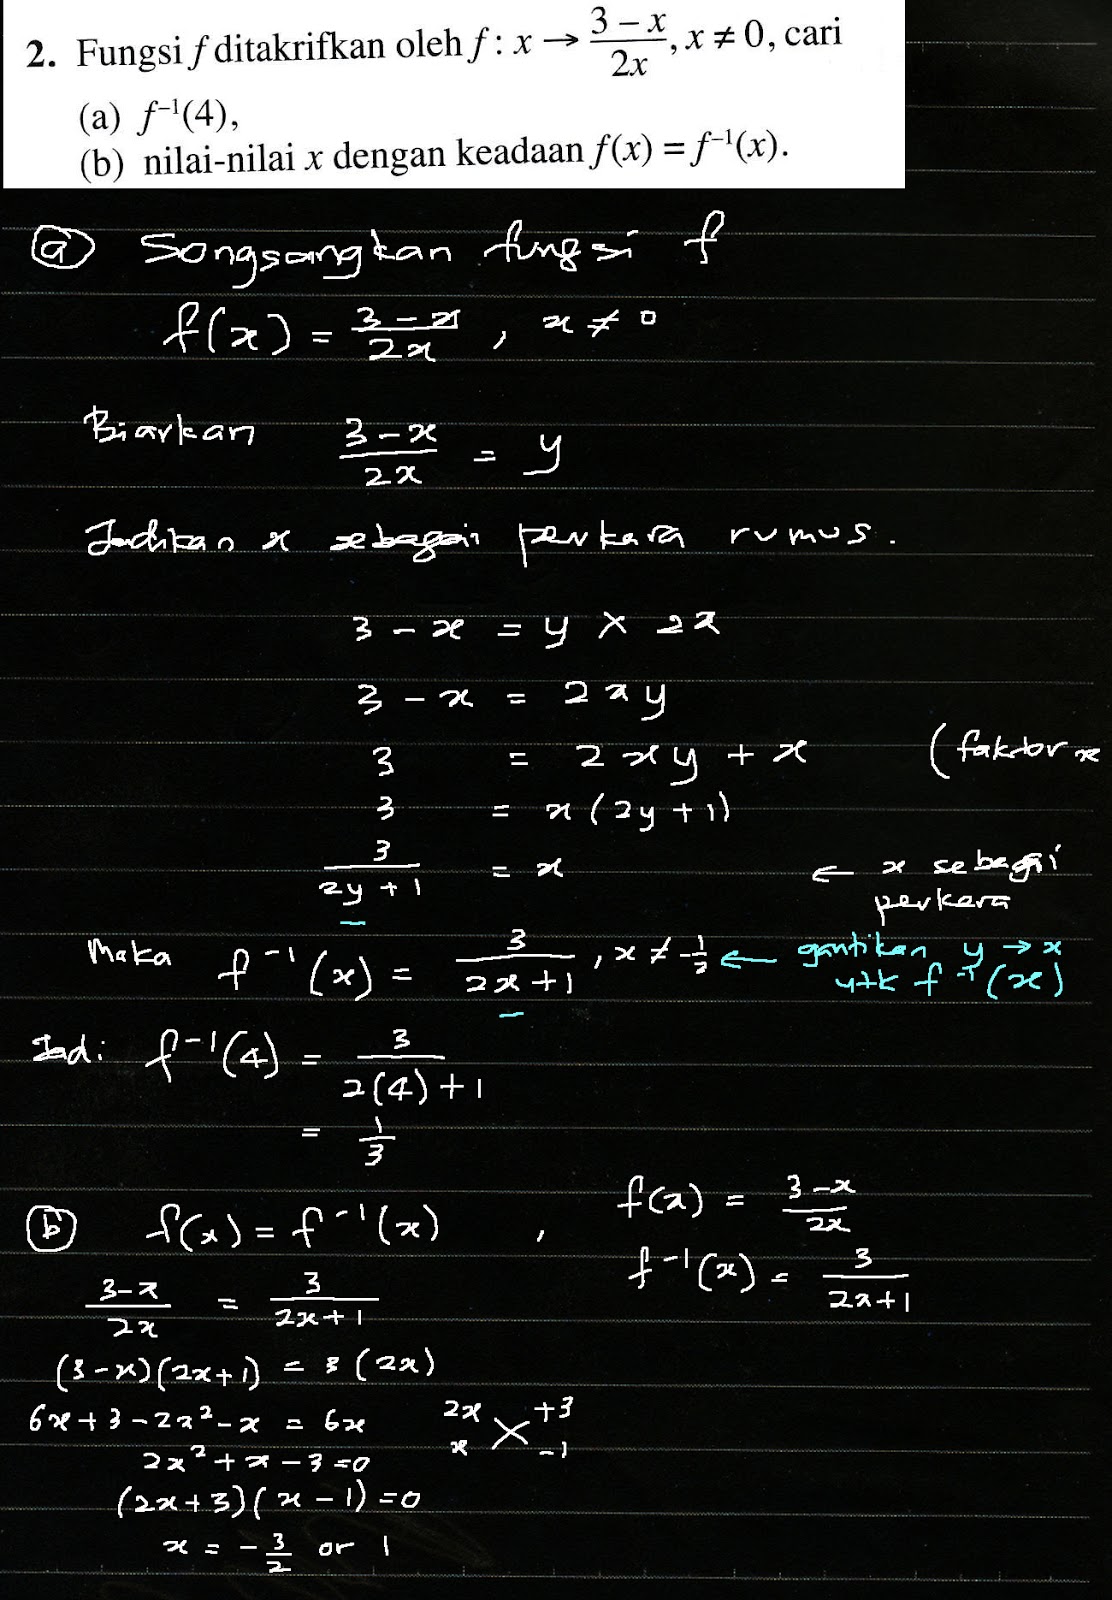 2. Fungsi f ditakrifkan oleh f : x → (3 – x)/(2x), x ≠ 0, cari
(a) f⁻¹(4),
(b) nilai-nilai x dengan keadaan f(x) = f⁻¹(x).
(a) Songsangkan fungsi f
f(x) = (3 – x)/(2x) , x ≠ 0
Biarkan (3 – x)/(2x) = y
Jadikan x sebagai perkara rumus.
3 – x = y × 2x
3 – x = 2xy
3 = 2xy + x (faktor x
3 = x(2y + 1)
3/(2y + 1) = x ← x sebagai
perkara
Maka f⁻¹(x) = 3/(2x + 1) , x ≠ -1/2 ← gantikan y → x
utk f⁻¹(x)
Jadi f⁻¹(4) = 3/(2(4) + 1)
= 1/3
(b) f(x) = f⁻¹(x) , f(x) = (3 – x)/(2x)
f⁻¹(x) = 3/(2x + 1)
(3 – x)/(2x) = 3/(2x + 1)
(3 – x)(2x + 1) = 3(2x)
6x + 3 – 2x² – x = 6x 2x +3
2x² + x – 3 = 0 x -1
(2x + 3)(x – 1) = 0
x = -3/2 or 1